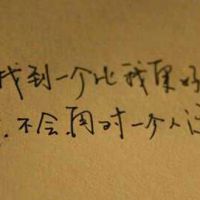 找到一个比我更好
不会因对一个人